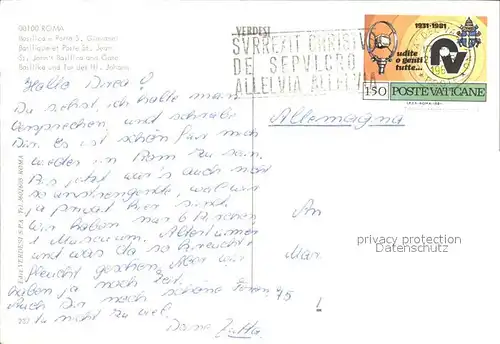 00100 ROMA
Basilica e Porta S. Giovanni
Basilique et Porte St. Jean
St. John's Basilica and Gate
Basilika und Tor des Hl. Johann
SVRREXIT CHRISTVS
DE SEPVLCRO
ALLELVIA ALLELVIA
1931-1981
udite
o genti
tutte...
RV
150 POSTE VATICANE
Allemagna
Hallo
Du siehst, ich halte mein
Versprechen und schreibe
Dir. Es ist schön für mich
wieder in Rom zu sein.
Bis jetzt war's auch nicht
so anstrengend, weil wir
ja privat hier sind.
Wir haben nur 6 Kirchen
1 Museum, Altertümer
und was da so kreucht
fleucht gesehen. Aber wir
haben ja noch Zeit.
Auch Dir noch schöne Ferien
tu nicht zu viel.
Deine Jutta
An
Mar
75 !
privacy protection
Datenschutz
Ediz. VERDESI S.P.A. - Tel. 3602803 - ROMA
VERDESI